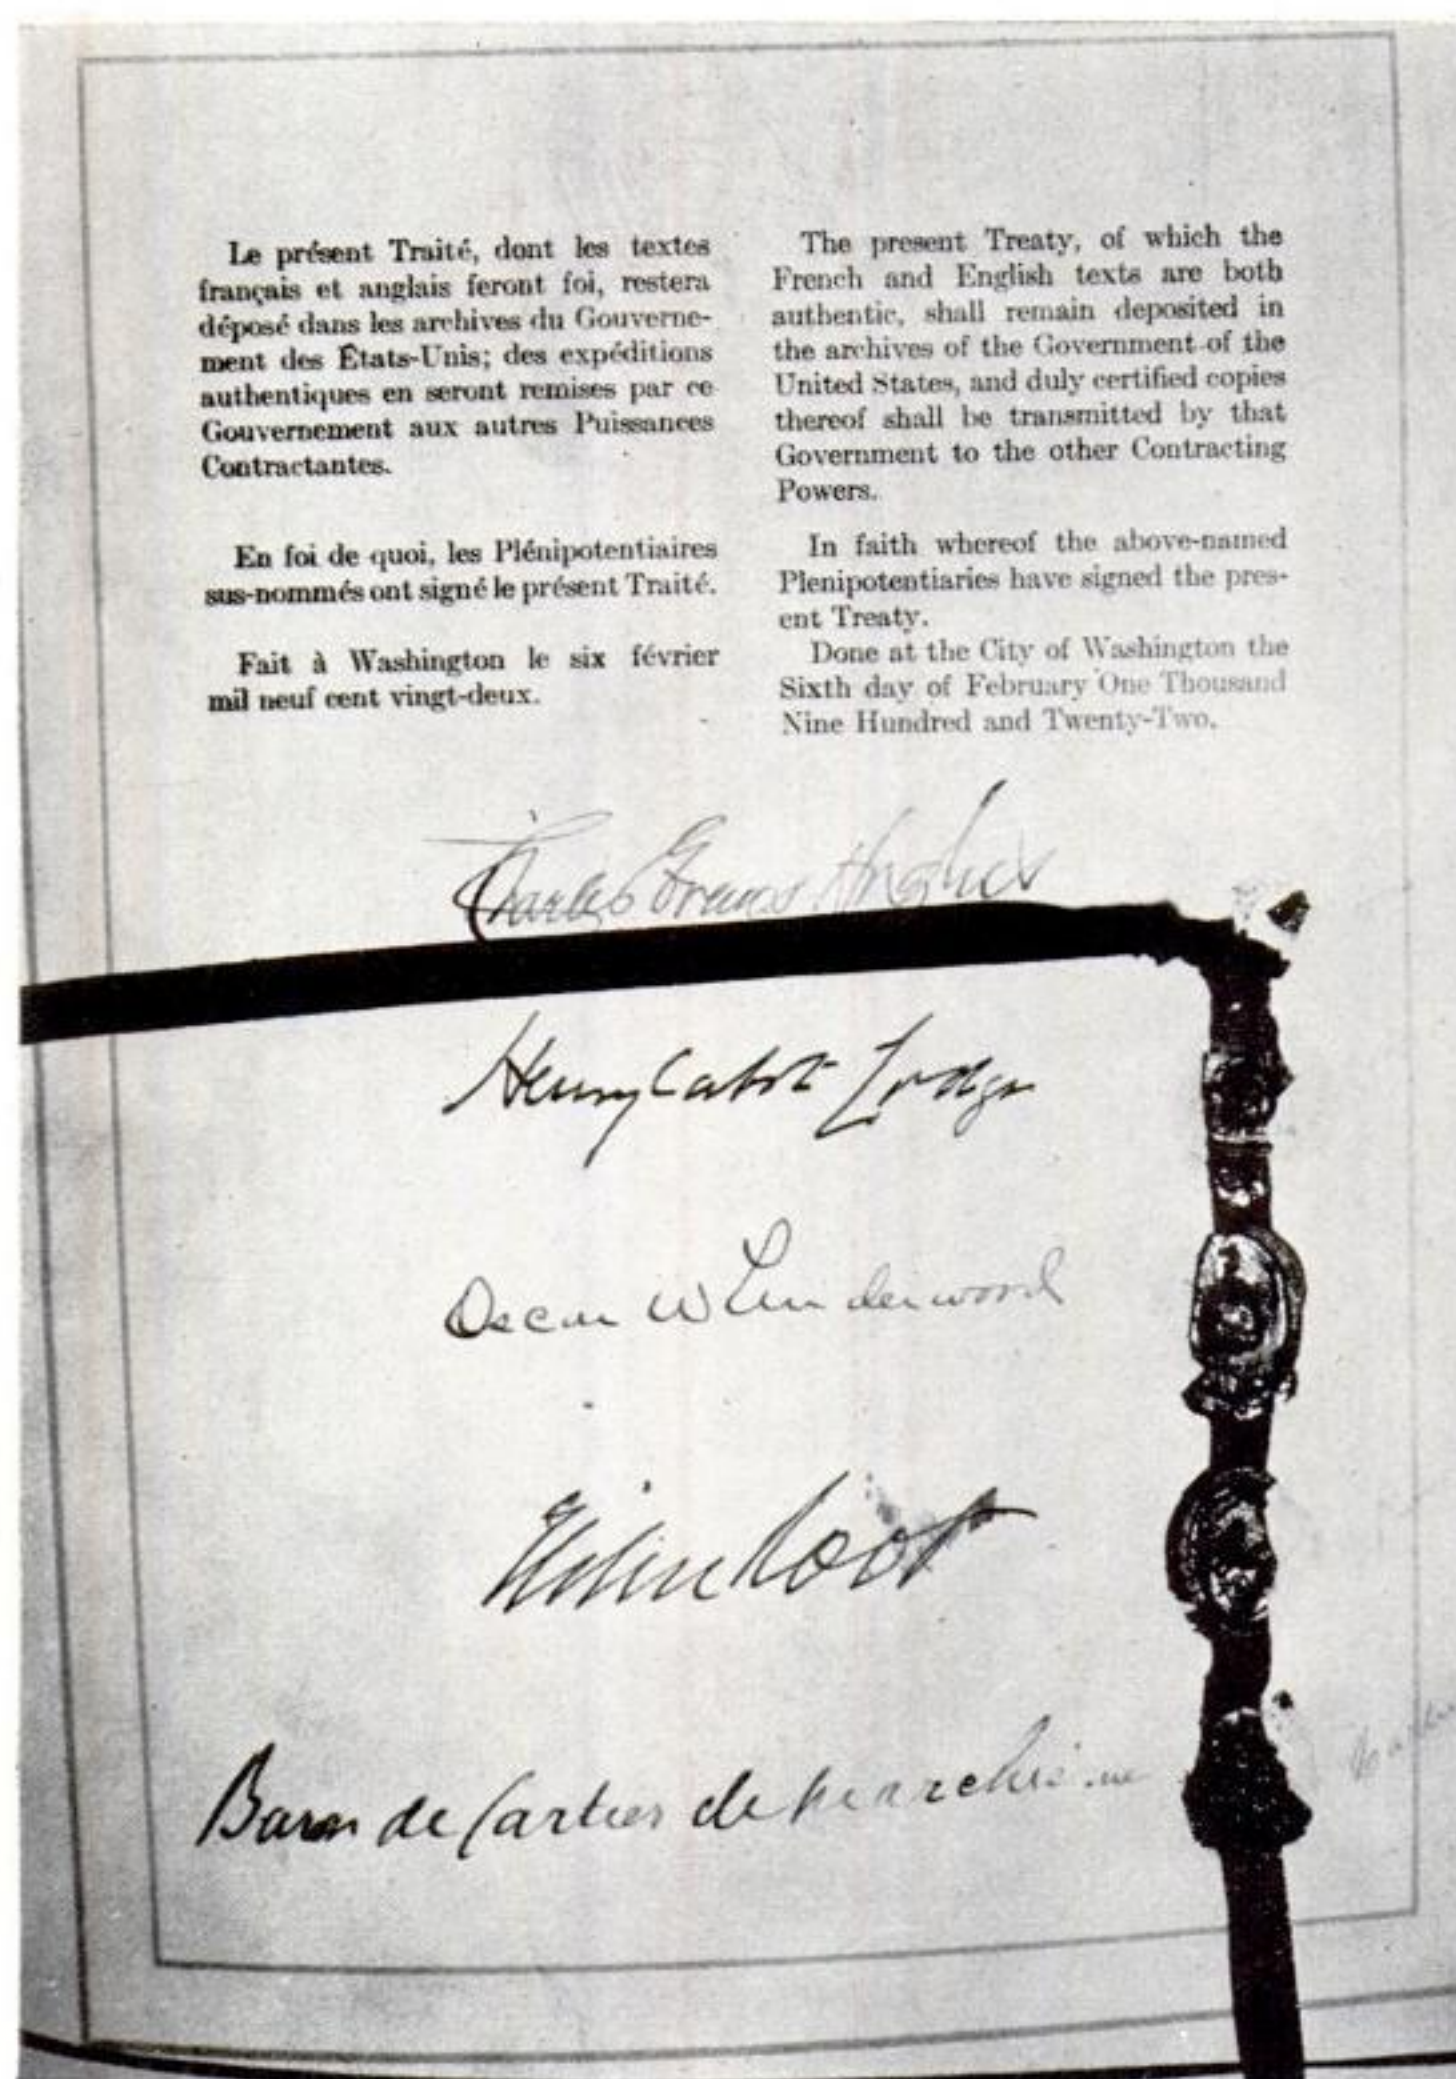 Le présent Traité, dont les textes
français et anglais feront foi, restera
déposé dans les archives du Gouverne-
ment des États-Unis; des expéditions
authentiques en seront remises par ce
Gouvernement aux autres Puissances
Contractantes.
En foi de quoi, les Plénipotentiaires
sus-nommés ont signé le présent Traité.
Fait à Washington le six février
mil neuf cent vingt-deux.
The present Treaty, of which the
French and English texts are both
authentic, shall remain deposited in
the archives of the Government of the
United States, and duly certified copies
thereof shall be transmitted by that
Government to the other Contracting
Powers.
In faith whereof the above-named
Plenipotentiaries have signed the pres-
ent Treaty.
Done at the City of Washington the
Sixth day of February One Thousand
Nine Hundred and Twenty-Two.
Charles Evans Hughes
Henry Cabot Lodge
Oscar W Underwood
Elihu Root
Baron de Cartier de Marchienne